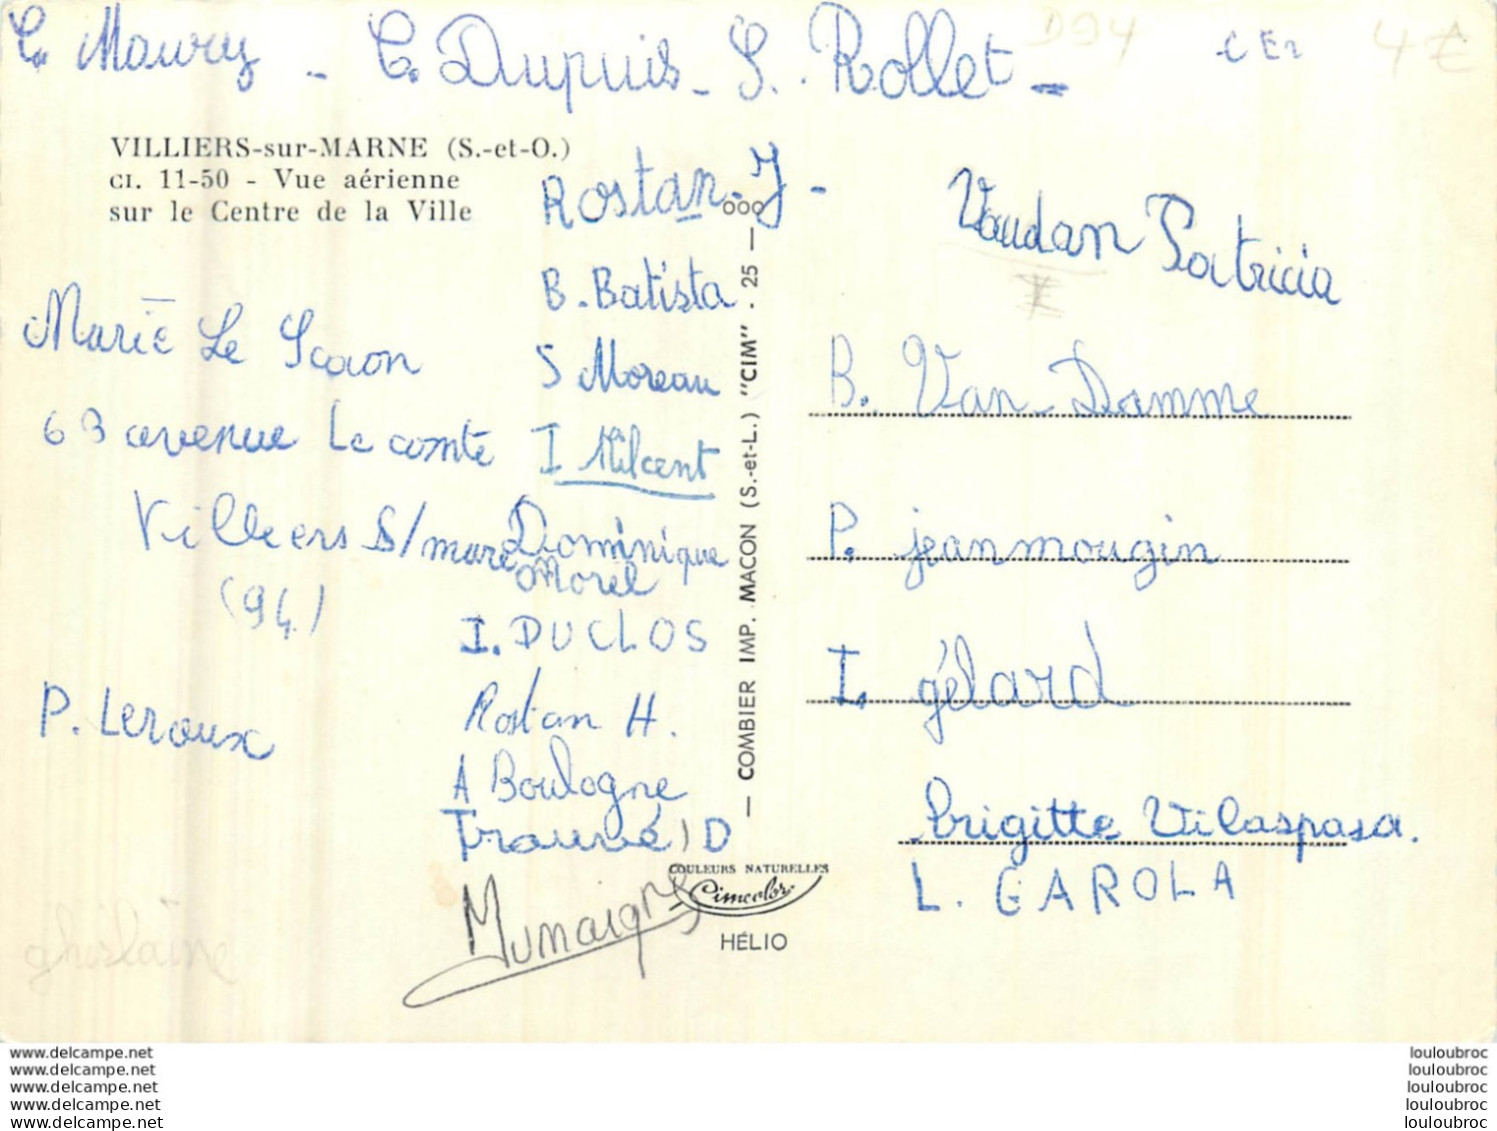 C. Maury - C. Dupuis - S. Rollet -
D94
4€
VILLIERS-sur-MARNE (S.-et-O.)
CI. 11-50 - Vue aérienne
sur le Centre de la Ville
Rostan - J -
B. Batista
S Moreau
I Milcent
Dominique
Morel
I. DUCLOS
Rostan H.
A Boulogne
Trouvé D
Munaigre
Marie Le Scaon
63 avenue Le comte
Villiers S/marne
(94)
P. Leroux
ghislaine
— COMBIER IMP. MACON (S.-et-L.) "CIM" . 25 — ooo
COULEURS NATURELLES
Cimcolor
HÉLIO
Vaudan Patricia
B. Van-Damme
P. jeanmougin
I. gélard
Brigitte Vilaspasa.
L. GAROLA
www.delcampe.net
www.delcampe.net
www.delcampe.net
www.delcampe.net
www.delcampe.net
louloubroc
louloubroc
louloubroc
louloubroc
louloubroc